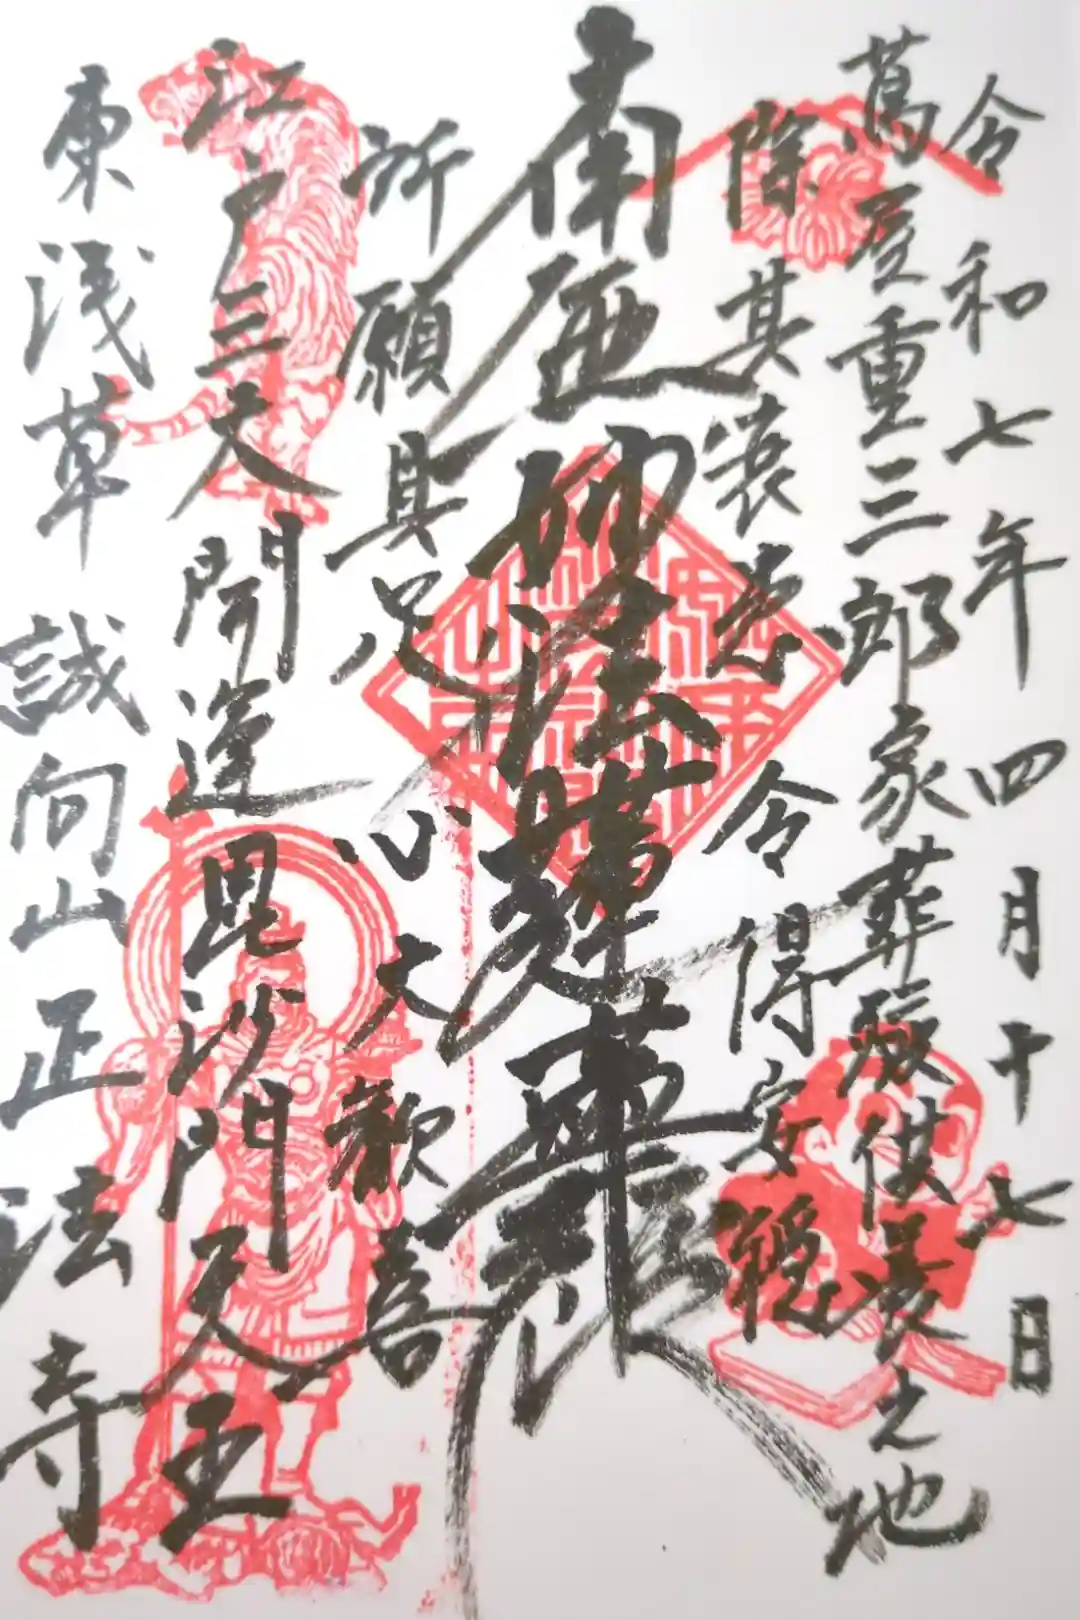 令和七年四月十七日
蔦屋重三郎家葬殯供養之地
除其衰患 令得安穏
南無妙法蓮華経
所願具足 心大歓喜
江戸三大開運毘沙門天王
東浅草 誠向山正法寺